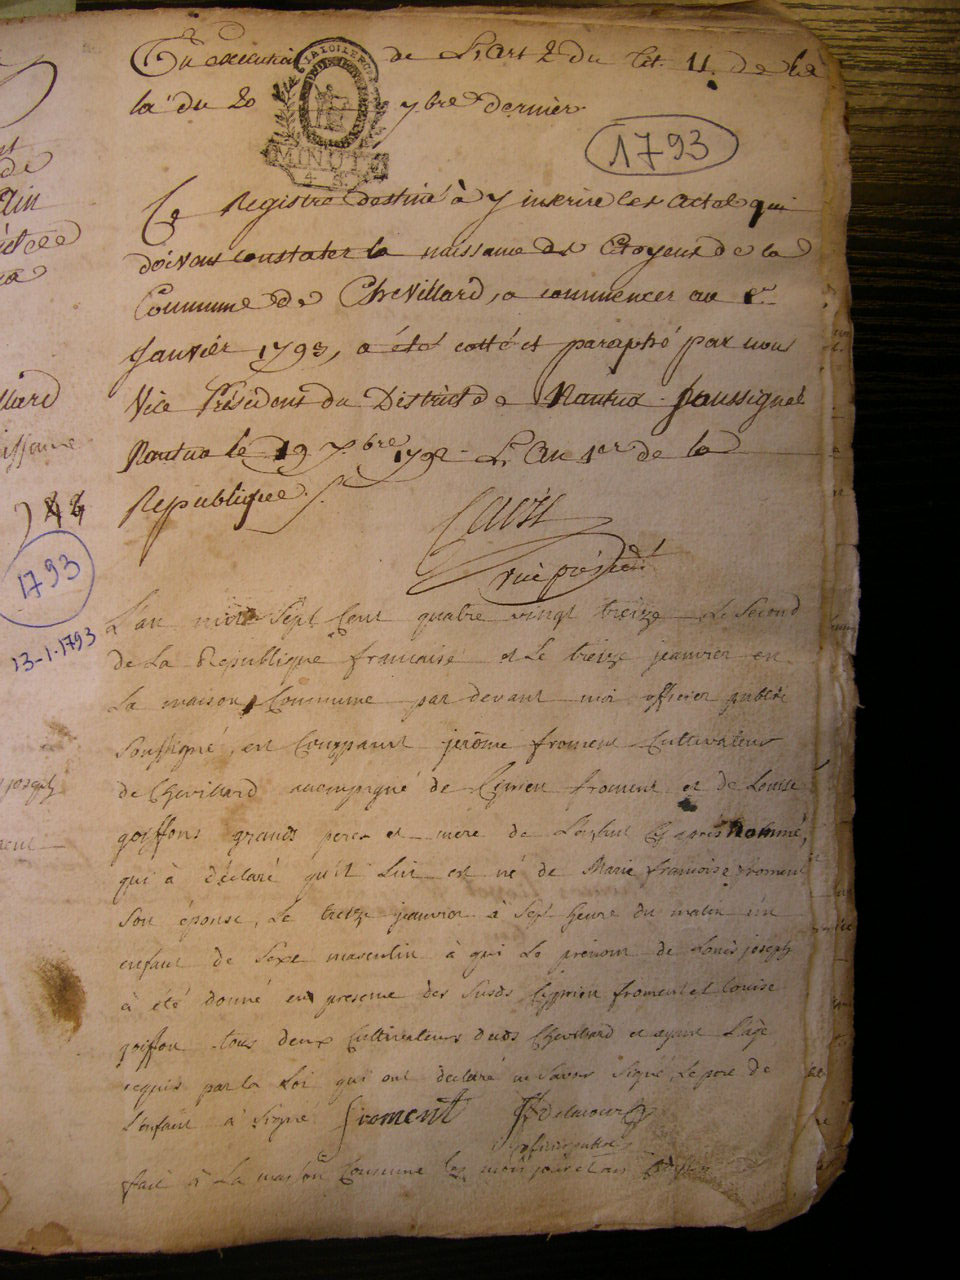 En execution de L'art 2 du tit. 11. de la
loi du 20 7bre dernier
LA LOI LE ROI
MINUTE
1793
Ce Registre destiné à y inscrire les actes qui
doivent constater la naissance des Citoyens de la
Commune de Chevillard, a commencer au 1er
Janvier 1793, a été cotté et paraphé par nous
Vice Président du District de Nantua soussigné
Nantua le 19 Xbre 1792 L'an 1er de la
Republique
vice président
L'an mil Sept Cent quatre vingt treize Le Second
de La Republique francaise et Le treize jeanvier en
La maison Commune par devant moi officier public
Soussigné, est Comparut jerome froment Cultivateur
de Chevillard accompagné de Cyprien froment et de Louise
goiffons grands pere et mere de L'enfant Cy après Nommé,
qui à déclaré qu'il Lui est né de Marie francoise froment
Son épouse, Le treize jeanvier à Sept heure du matin un
enfant de Sexe masculin à qui Le prénom de Louis joseph
à été donné en presence des Susds Cyprien froment et Louise
goiffon tous deux Cultivateurs duds Chevillard et ayant L'age
requis par La Loi qui ont declaré ne Savoir Signé, Le pere de
L'enfant à Signé froment
officier public
fait à La maison Commune les mois jour et an
1793
13-1-1793